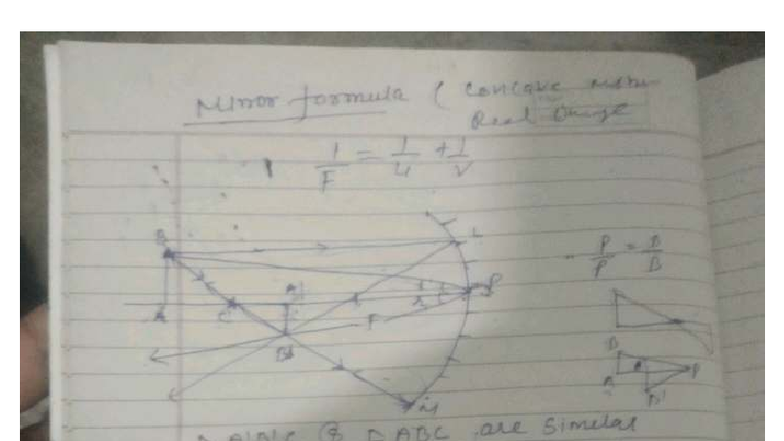 Mirror formula ( Concave mirror
Real Image
1/F = 1/u + 1/v
B
L
P/P = B/B
A
C
A'
F
i
r
P
B'
M
B
A
P
B'
Δ A'B'C & Δ ABC are similar